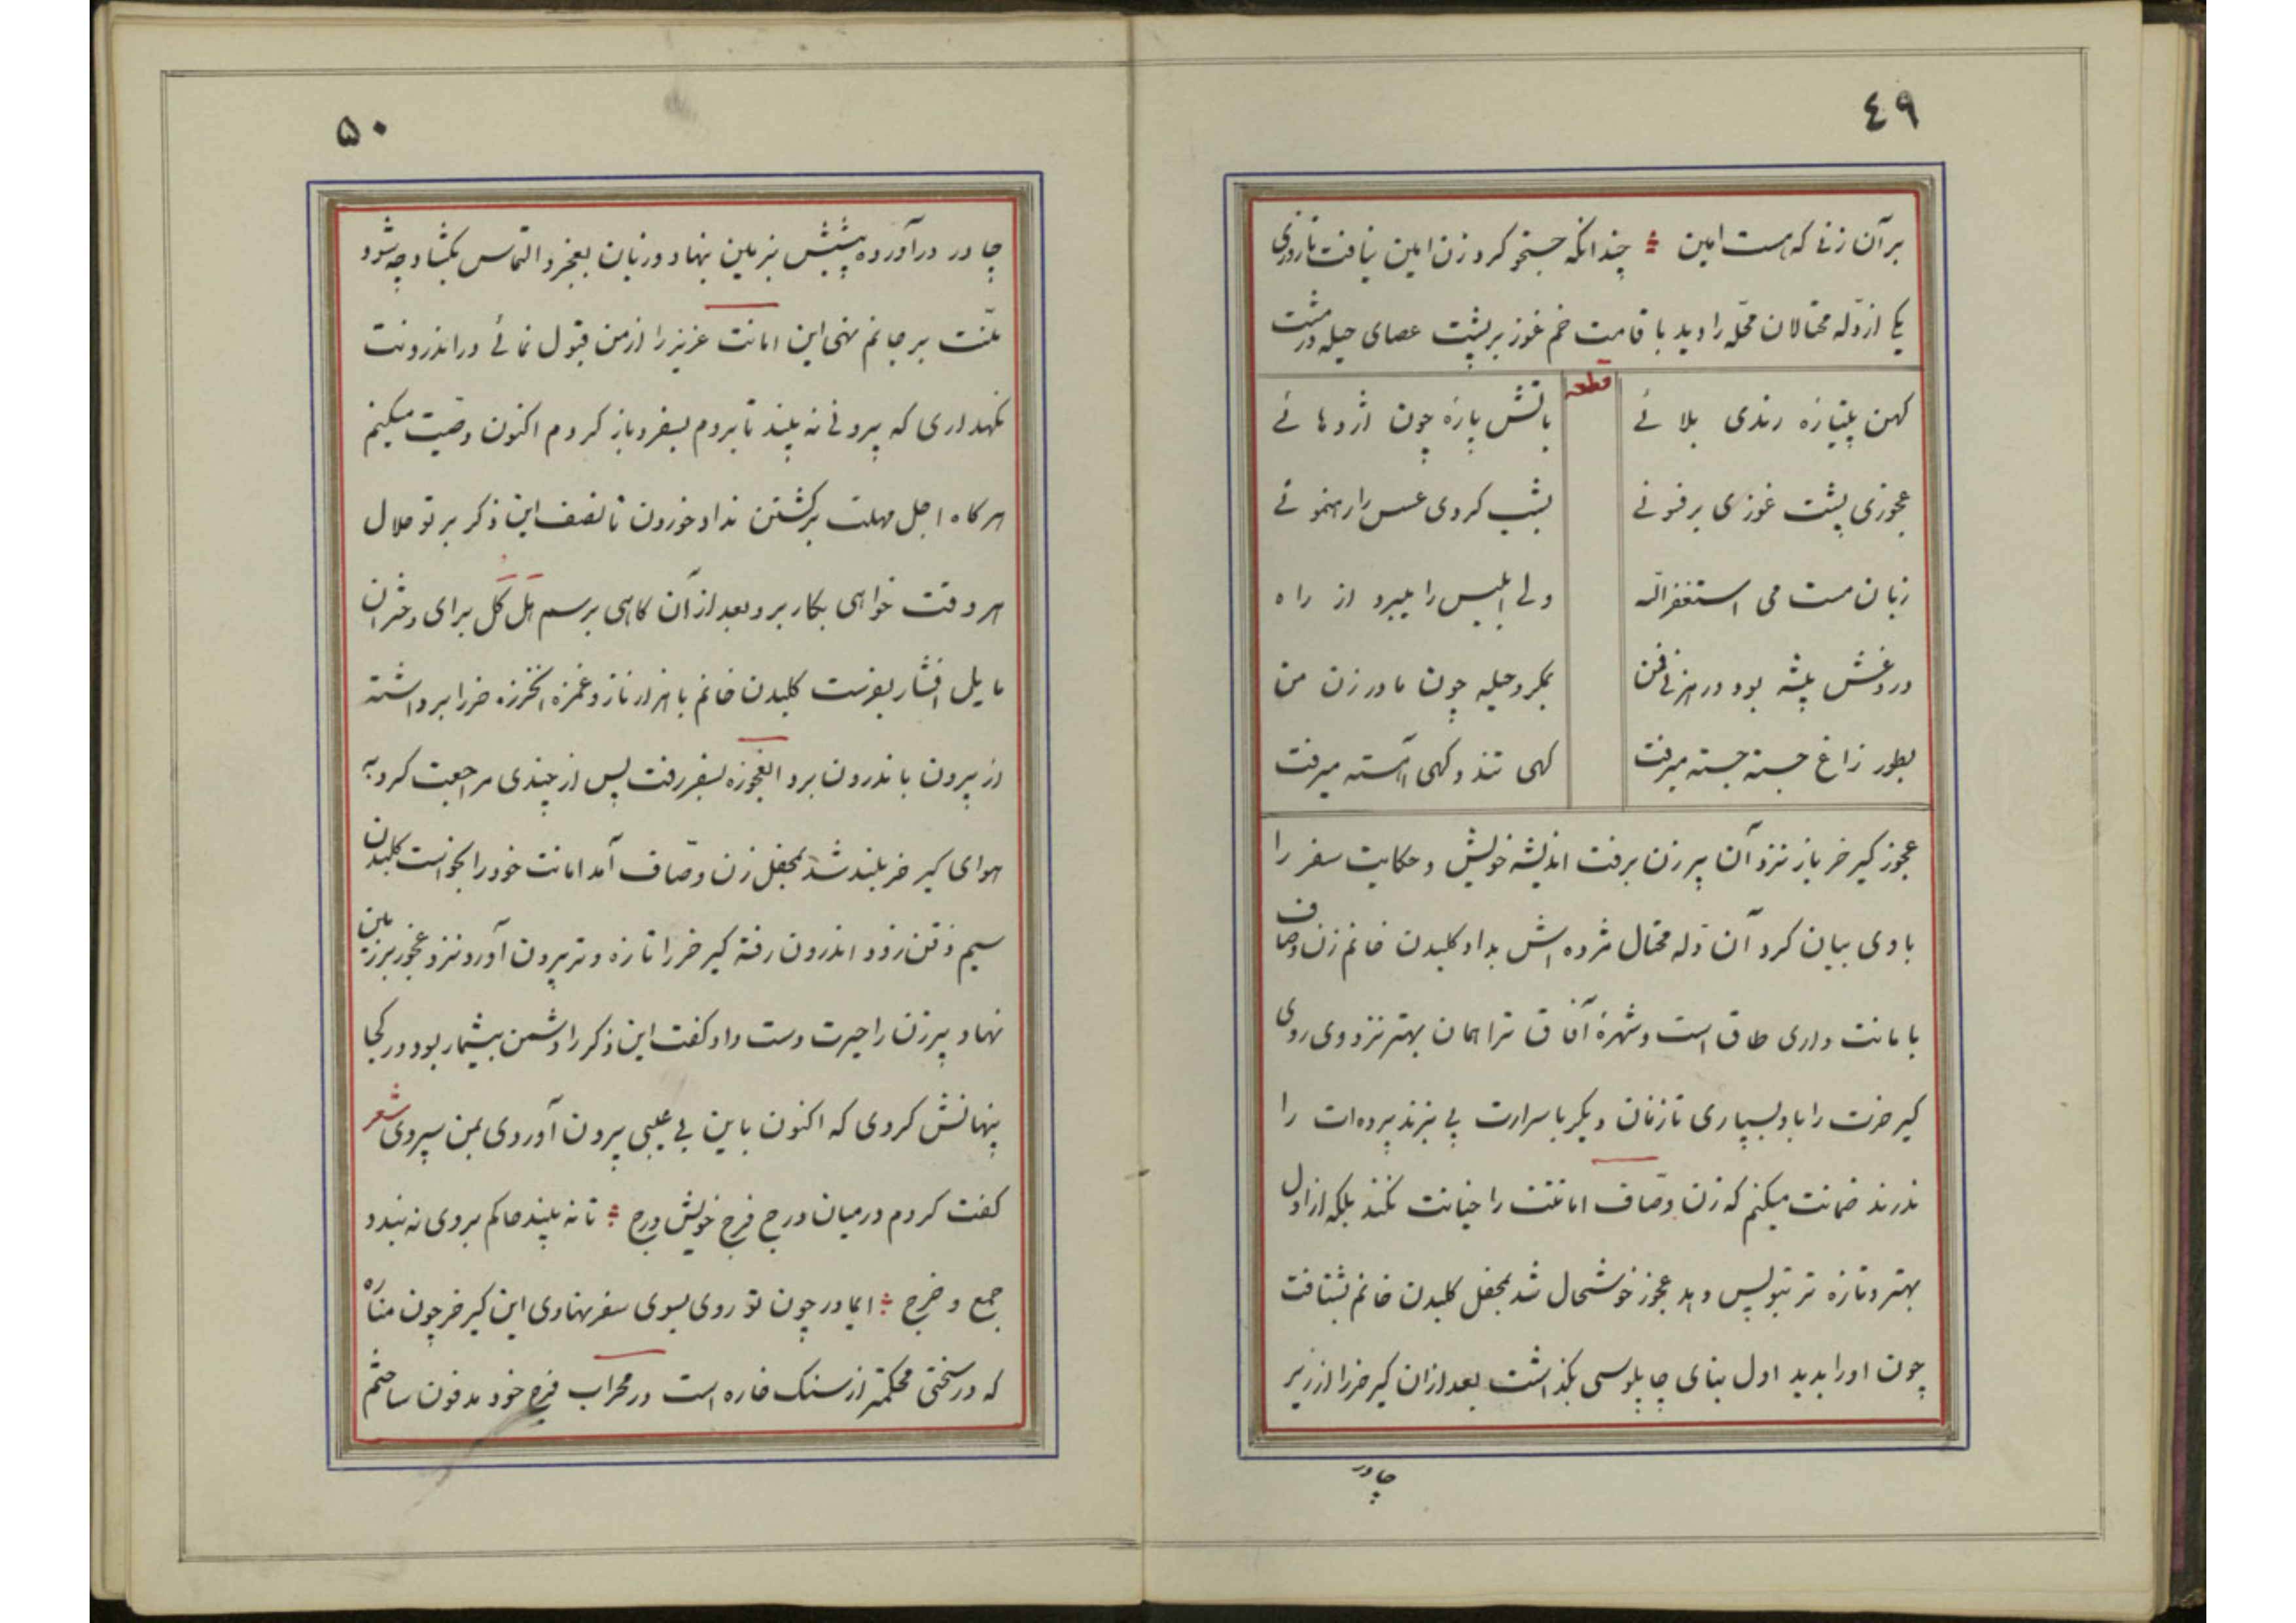 ٤٩
بر آن زنی که هست امین ؞ چندانکه جستجو کرد زن امین نیافت تا روزی
یکی از دلّه محتالان محلّه را دید با قامت خم غوز بر پشت عصای حیله در مشت
قطعه
کهن پتیاره رندی بلائی باتش پاره چون اژدهائی
عجوزی پشت غوزی بر فنونی بشب کردی عسس را رهنمونی
زبان مست می استغفرالله ولی ابلیس را میبرد از راه
دروغش پیشه بود در هر فن بمکر و حیله چون مادر زن من
بطور زاغ جسته جسته میرفت کهی تند و کهی آهسته میرفت
عجوز کیر خر باز نزد آن پیر زن برفت اندیشه خویش و حکایت سفر را
باوی بیان کرد آن دله محتال مژده اش بداد کلبدن خانم زن وصاف
بامانت داری طاق است و شهرهٔ آفاق ترا همان بهتر نزد وی روی
کیر خرت را باو بسپاری تا زنان دیکر باسرارت پی نبرند پرده‌ات را
ندرند ضمانت میکنم که زن وصّاف امانتت را خیانت نکند بلکه از اول
بهتر و تازه تر بتو پس دهد عجوز خوشحال شد بمحفل کلبدن خانم بشتافت
چون اورا بدید اول بنای چاپلوسی بکذاشت بعد از ان کیر خر را از زیر
چادر
۵۰
چادر درآورده پیشش بزمین نهاد و زبان بعجز و التماس بکشاد چه شود
منّت بر جانم نهی این امانت عزیز را از من قبول نمائی در اندرونت
نکهداری که بیرونی نه بیند تا بروم بسفر و باز کردم اکنون وصّیت میکنم
هرکاه اجل مهلت برکشتن نداد خوردن تا نصف این ذکر بر تو حلال
هر وقت خواهی بکار برد بعد از آن کاهی برسم هل کل برای دختران
مایل افشار بفرست کلبدن خانم با هزار ناز و غمزه انخرزه خر را برداشته
از بیرون باندرون برد العجوزه بسفر رفت پس از چندی مراجعت کرد به
هوای کیر خر بلند شد بمحفل زن وصّاف آمد امانت خود را بخواست کلبدن
سیم ذقن زود اندرون رفته کیر خر را تازه و تر بیرون آورد نزد عجوز بر زمین
نهاد پیرزن را حیرت دست داد کفت این ذکر را دشمن بیشمار بود در کجا
پنهانش کردی که اکنون باین بی عیبی بیرون آوردی بمن سپردی شعر
کفت کردم در میان درج فرج خویش درج ؞ تا نه بیند حاکم بروی نه بندد
جمع و خرج ؞ ایمادر چون تو روی بسوی سفر نهادی این کیر خر چون مناره
که در سختی محکمتر از سنک خاره است در محراب فرج خود مدفون ساختم